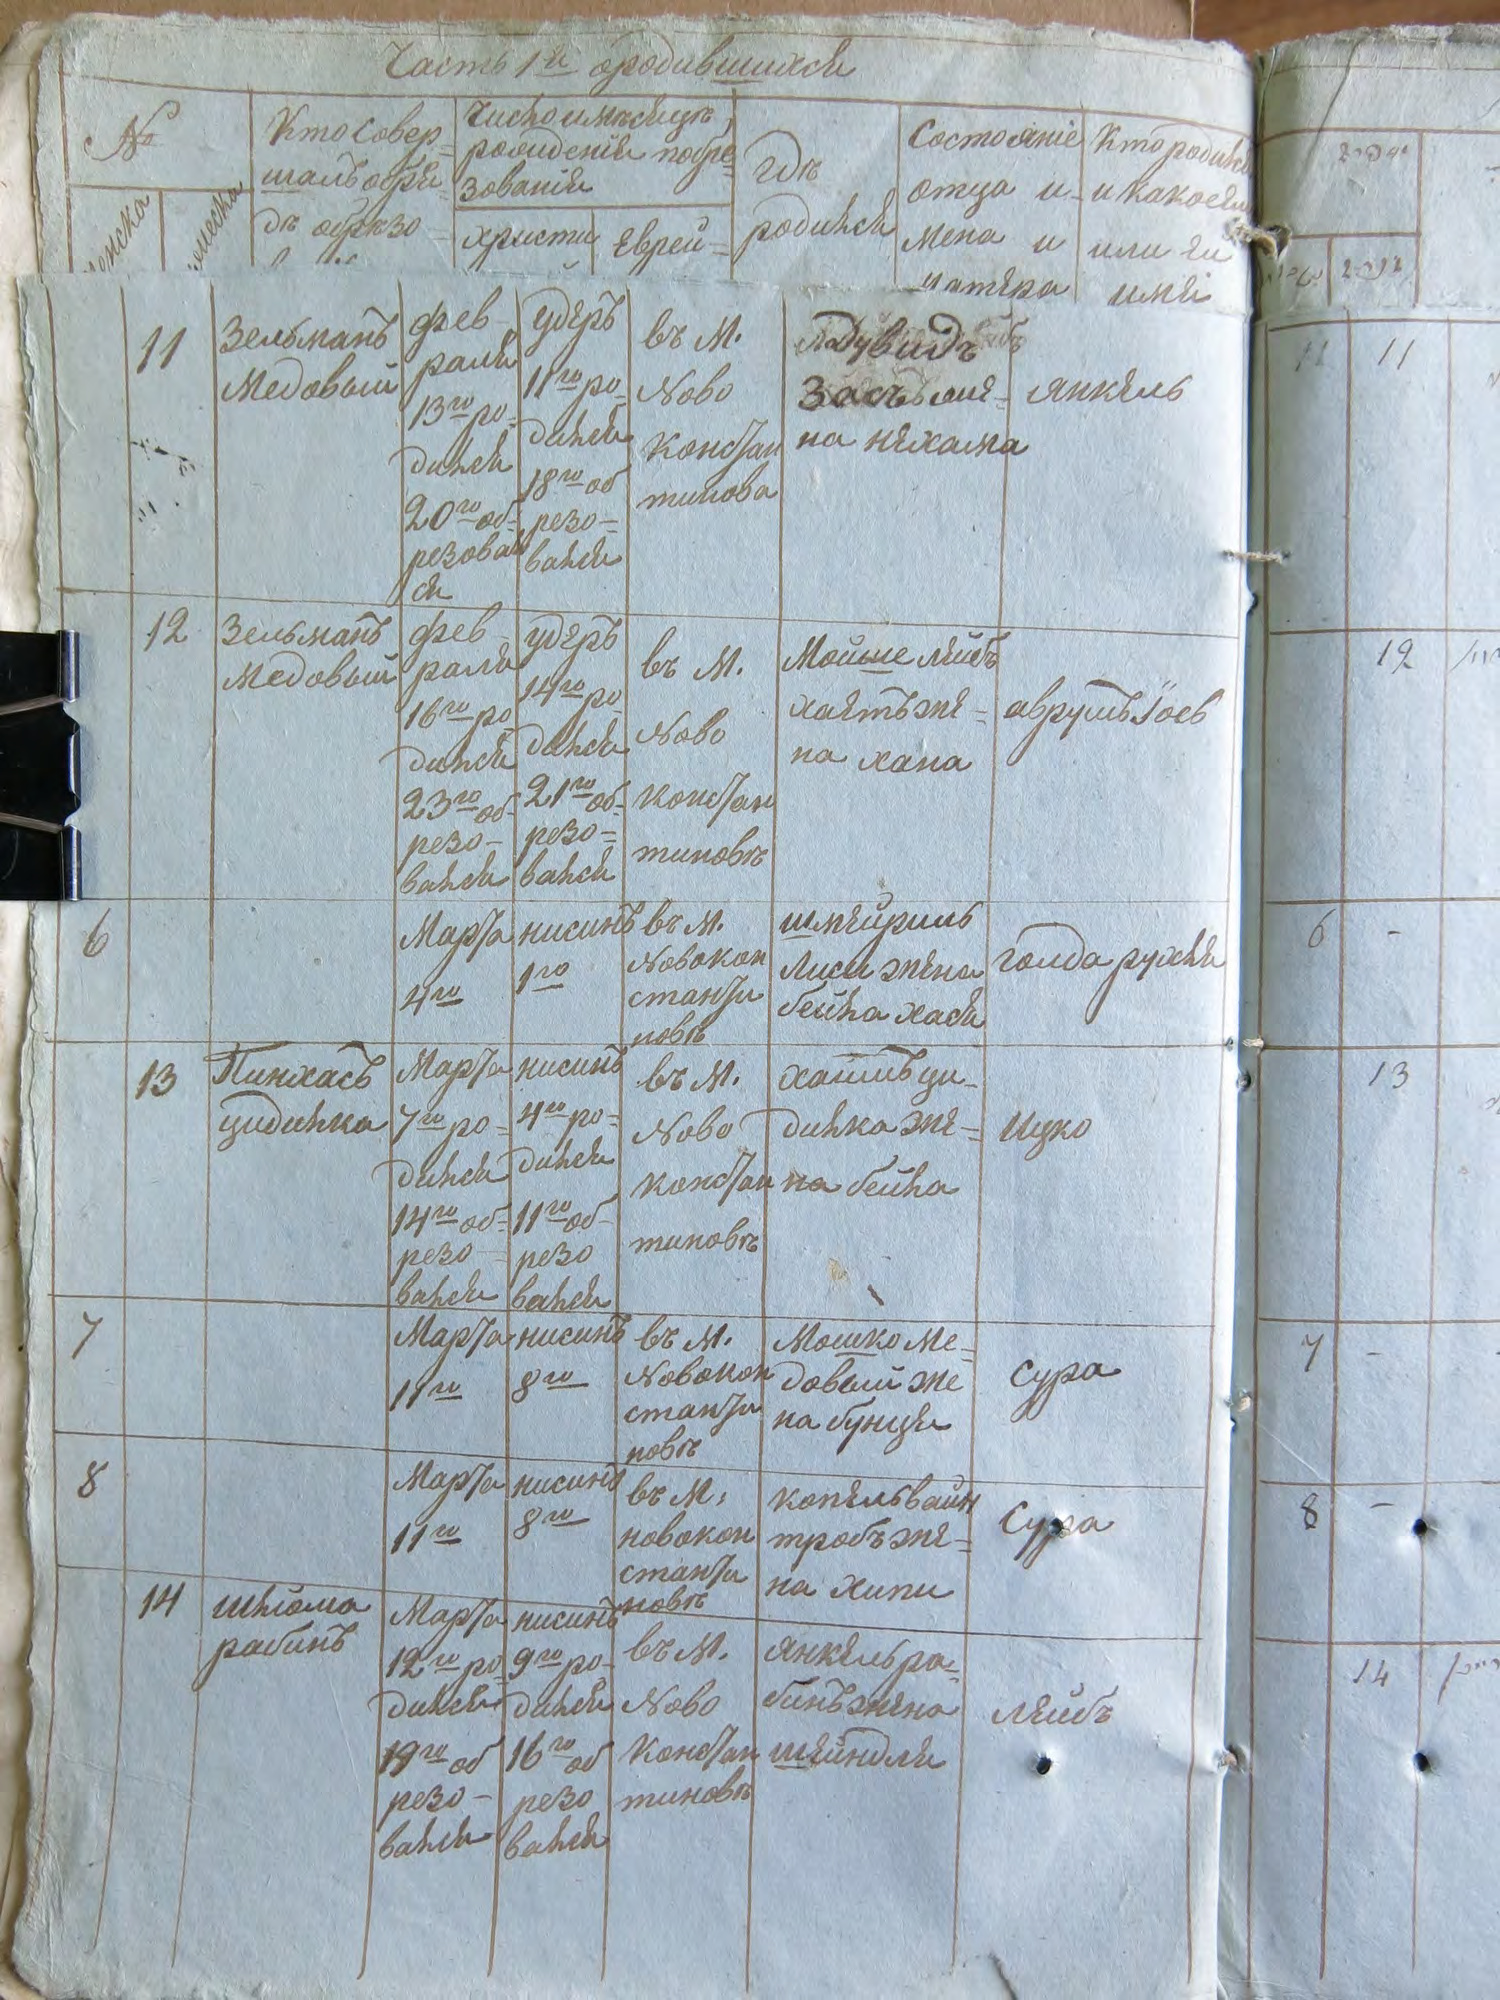 Часть 1й ородившихся
№
женска
мужеска
Кто совер-
шалъ обря-
дъ обрѣзо
Число и мѣсяцъ
рождения и обре-
зования
христи
еврей=
гдѣ
родился
Состояніе
отца и-
мена и
матера
Кто родился
и какое имя
или ей
имя
11
Зельманъ
Медовый
фев
раля
13го ро-
дился
20го об-
резовал
ся
удеръ
11го ро-
дился
18го об
резо-
вался
въ М.
Ново
Констан
тинова
Дувидъ
Засъ же-
на нехама
Янкель
11
11
12
Зельманъ
Медовый
фев
раля
16го ро
дился
23го об-
резо-
вался
удеръ
14го ро
дился
21го об-
резо=
вался
въ М.
Ново
Констан
тиновѣ
Мойше лейбъ
хаетъ же-
на хана
аврумъ Іоев
12
6
Марта
4го
нисинъ
1го
въ М.
Новокон
станти
новѣ
шмейриль
Лиси жена
бейла хася
голда рухля
6
-
13
Пинхасъ
цидилка
Марта
7го ро-
дился
14го об-
резо-
вался
нисинъ
4го ро-
дился
11го об-
резо
вался
въ М.
Ново
Констан
тиновѣ
хаимъ ци-
дилка же-
на бейла
Ицко
13
7
Марта
11го
нисинъ
8го
въ М.
Новокон
станти
новѣ
Мошко Ме-
довый же
на бунця
Сура
7
-
8
Марта
11го
нисинъ
8го
въ М.
новокон
станти
новѣ
копель вайн
тробъ же-
на хипи
Сура
8
-
14
шлёма
рабинъ
Марта
12го ро
дился
19го об
резо-
вался
нисинъ
9го ро-
дился
16го об
резо
вался
въ М.
Ново
Констан
тиновѣ
Янкель ра-
бинъ жена
шейндля
Лейбъ
14